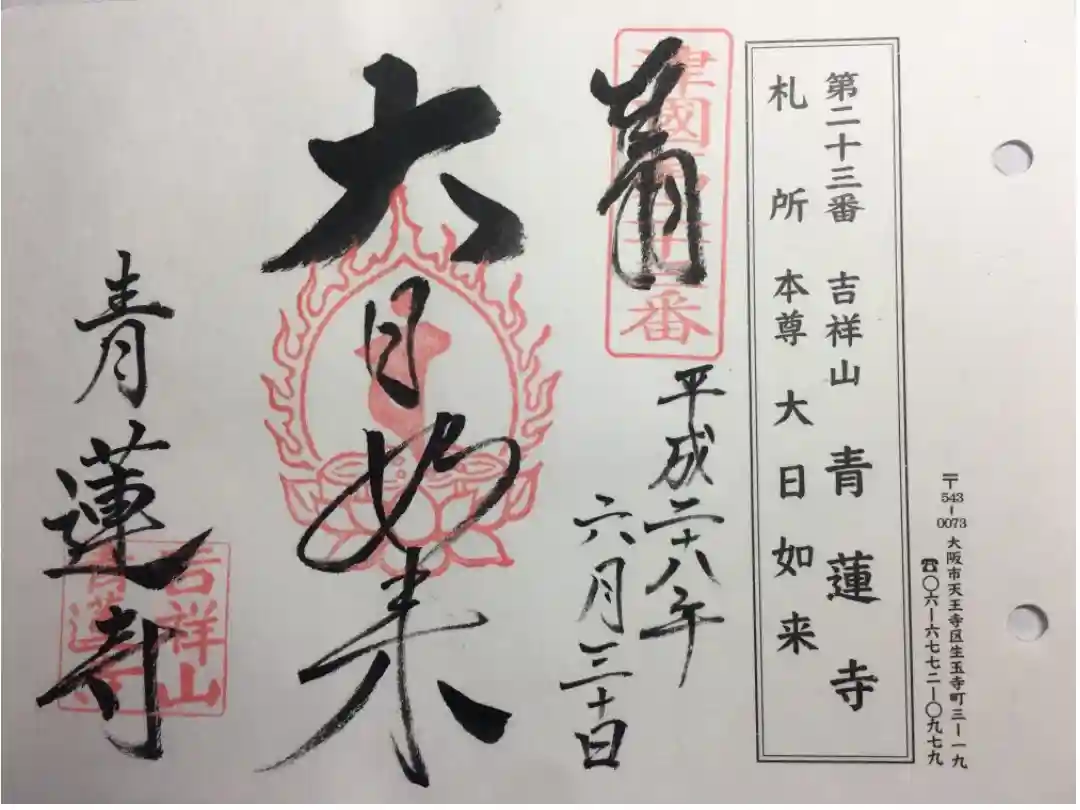 〒543-0073 大阪市天王寺区生玉寺町三-一九
☎〇六-六七七二-〇九七九
第二十三番 吉祥山 青蓮寺
札所本尊 大日如来
平成二十八年
六月三十日
大日如来
青蓮寺
吉祥山
青蓮寺